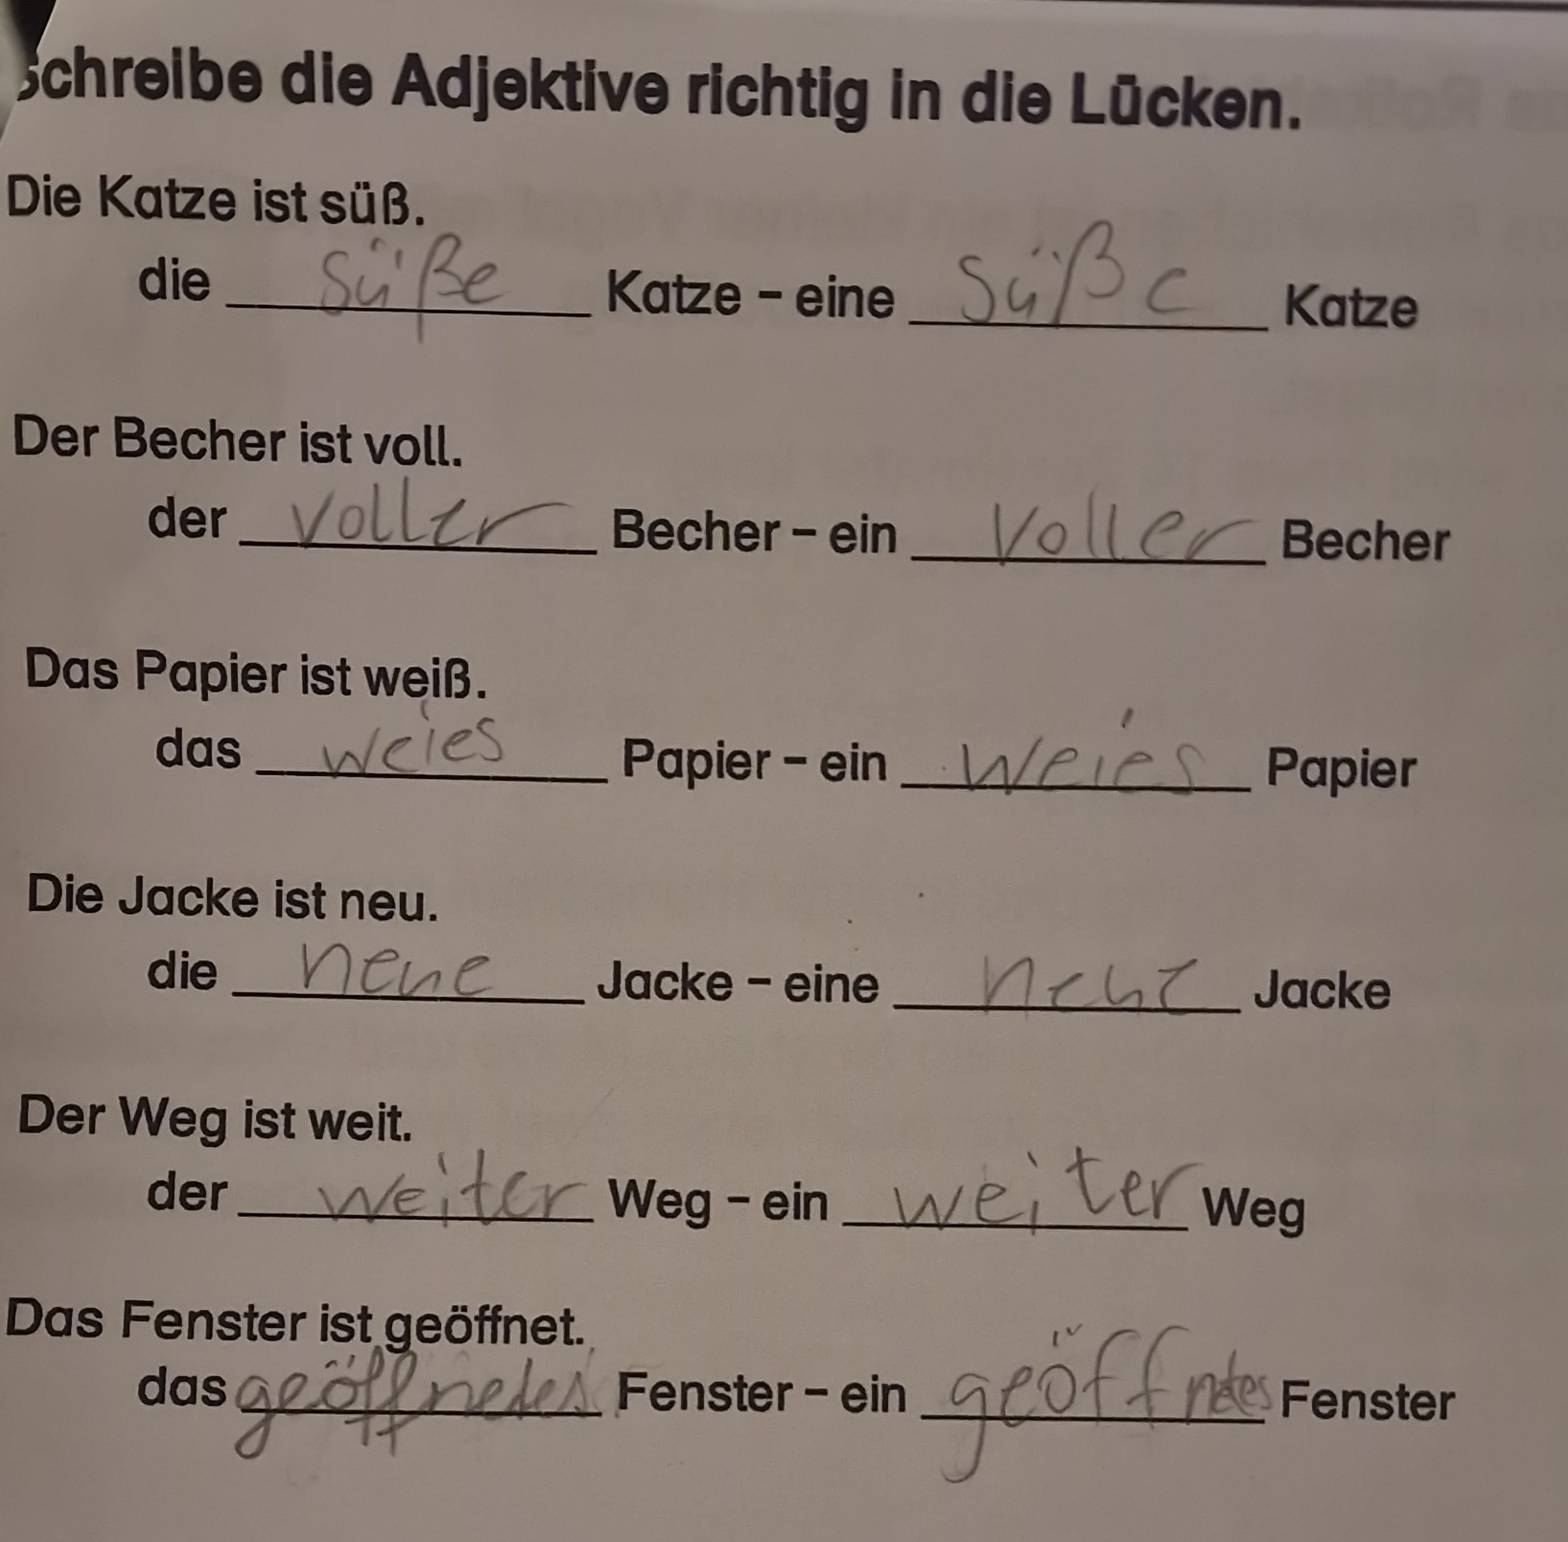 Schreibe die Adjektive richtig in die Lücken.
Die Katze ist süß.
die süße Katze - eine süße Katze
Der Becher ist voll.
der voller Becher - ein voller Becher
Das Papier ist weiß.
das weies Papier - ein weies Papier
Die Jacke ist neu.
die neue Jacke - eine neue Jacke
Der Weg ist weit.
der weiter Weg - ein weiter Weg
Das Fenster ist geöffnet.
das geöffnetes Fenster - ein geöffnetes Fenster